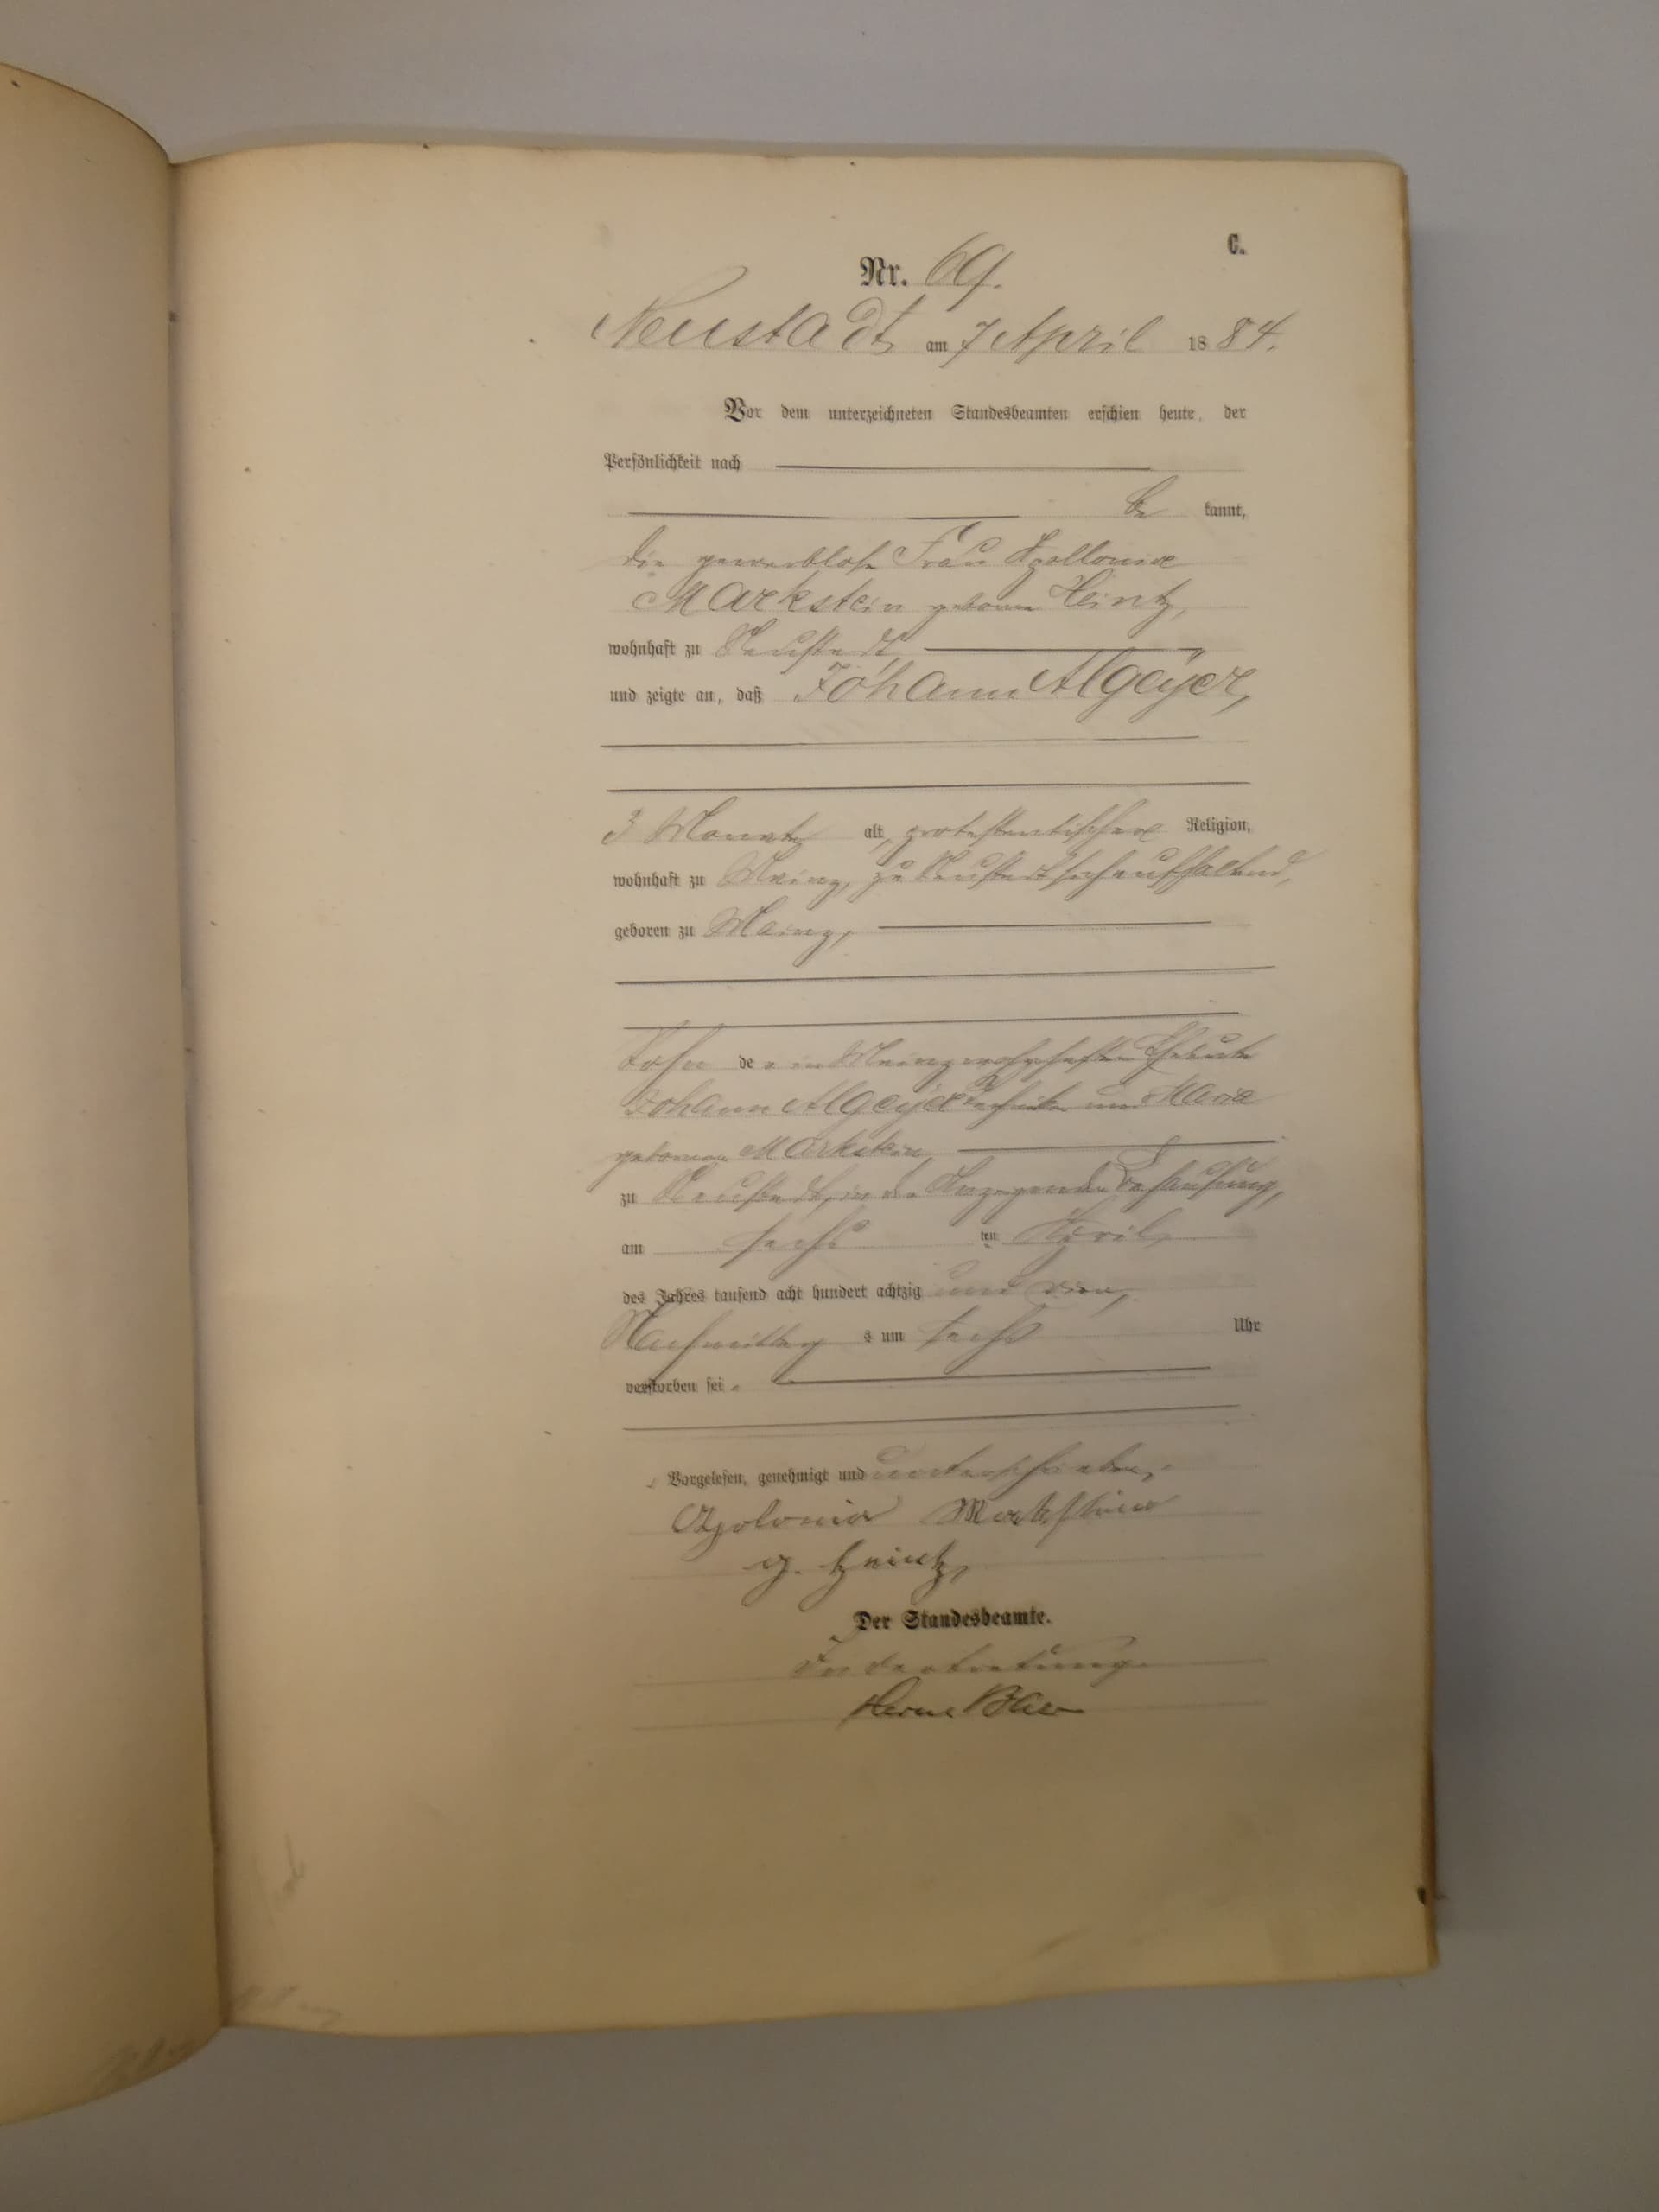 C.
Nr. 69.
Neustadt am 7 April 1884.
Vor dem unterzeichneten Standesbeamten erschien heute, der
Persönlichkeit nach
be kannt,
die gewerblose Frau Apollonia
Markstein geborene Heintz,
wohnhaft zu Neustadt
und zeigte an, daß Johann Algeyer,
3 Monate alt, protestantischer Religion,
wohnhaft zu Mainz, zu Neustadt sich aufhaltend,
geboren zu Mainz,
Sohn der in Mainz wohnhaften Eheleute
Johann Algeyer und Maria
geborene Markstein
zu Neustadt, in der Anzeigenden Behausung,
am sechs ten April
des Jahres tausend acht hundert achtzig und vier,
Nachmittag s um sechs Uhr
verstorben sei.
Vorgelesen, genehmigt und unterschrieben.
Apolonia Markstein
g. Heintz,
Der Standesbeamte.
In Vertretung